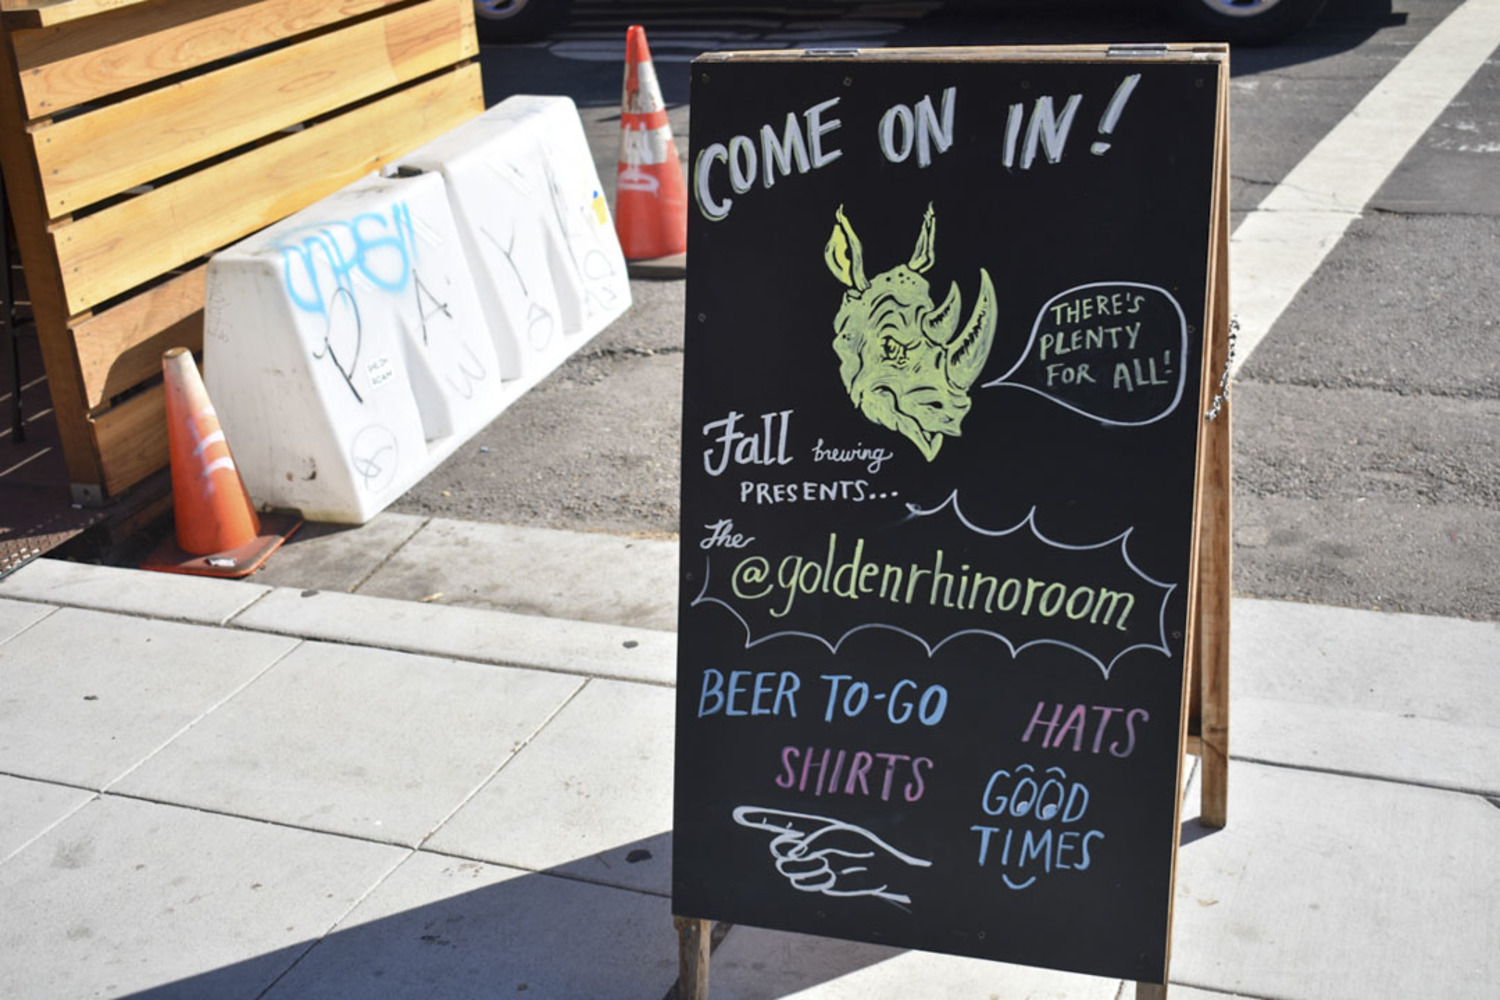 COME ON IN!
THERE'S
PLENTY
FOR ALL!
Fall brewing
PRESENTS...
The
@goldenrhinoroom
BEER TO-GO
HATS
SHIRTS
GOOD
TIMES